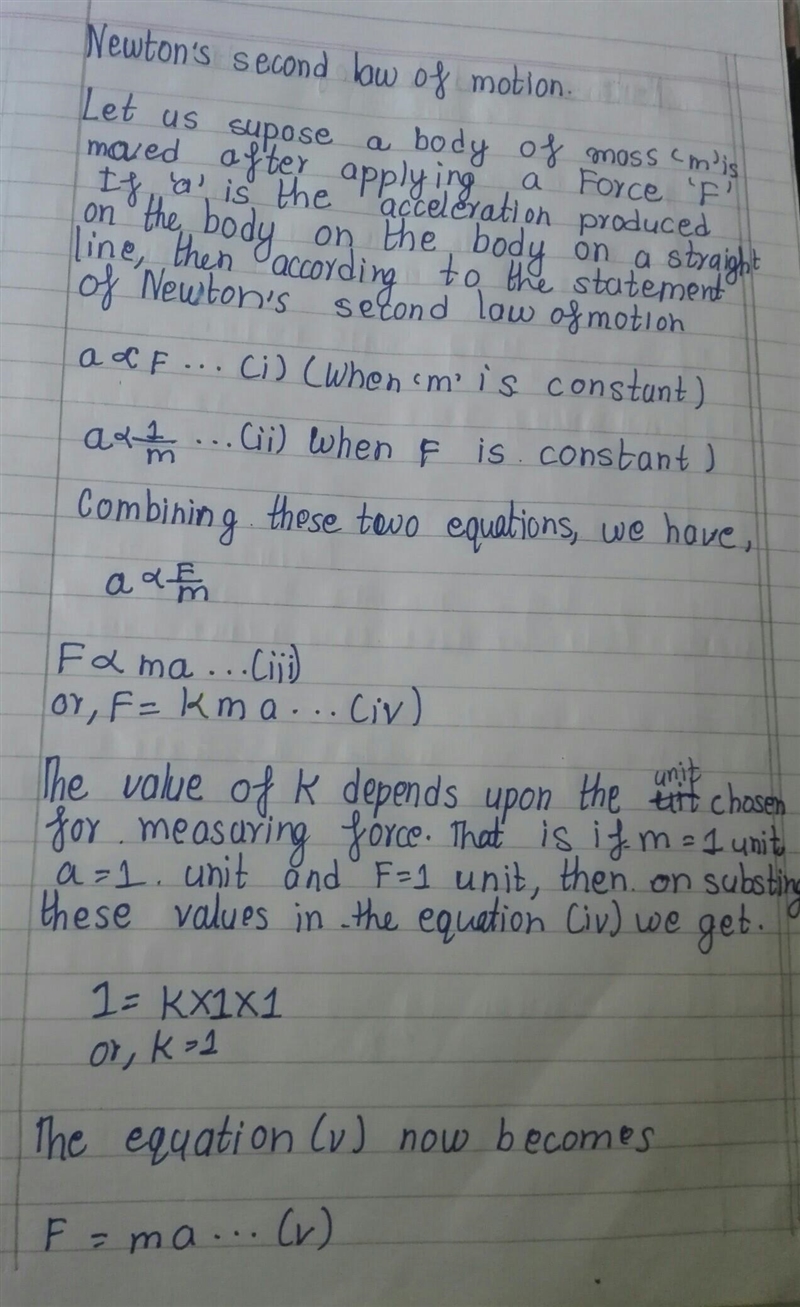 Newton's second law of motion.
Let us supose a body of mass 'm' is
moved after applying a Force 'F'
If 'a' is the acceleration produced
on the body on the body on a straight
line, then according to the statement
of Newton's second law of motion
a ∝ F ... (i) (When 'm' is constant)
a ∝ 1/m ... (ii) When F is constant)
Combining these two equations, we have,
a ∝ F/m
F ∝ ma ... (iii)
or, F = K m a ... (iv)
The value of K depends upon the unit chosen
for measuring force. That is if m = 1 unit
a = 1. unit and F = 1 unit, then on substing
these values in the equation (iv) we get.
1 = K×1×1
or, K = 1
The equation (v) now becomes
F = ma ... (v)